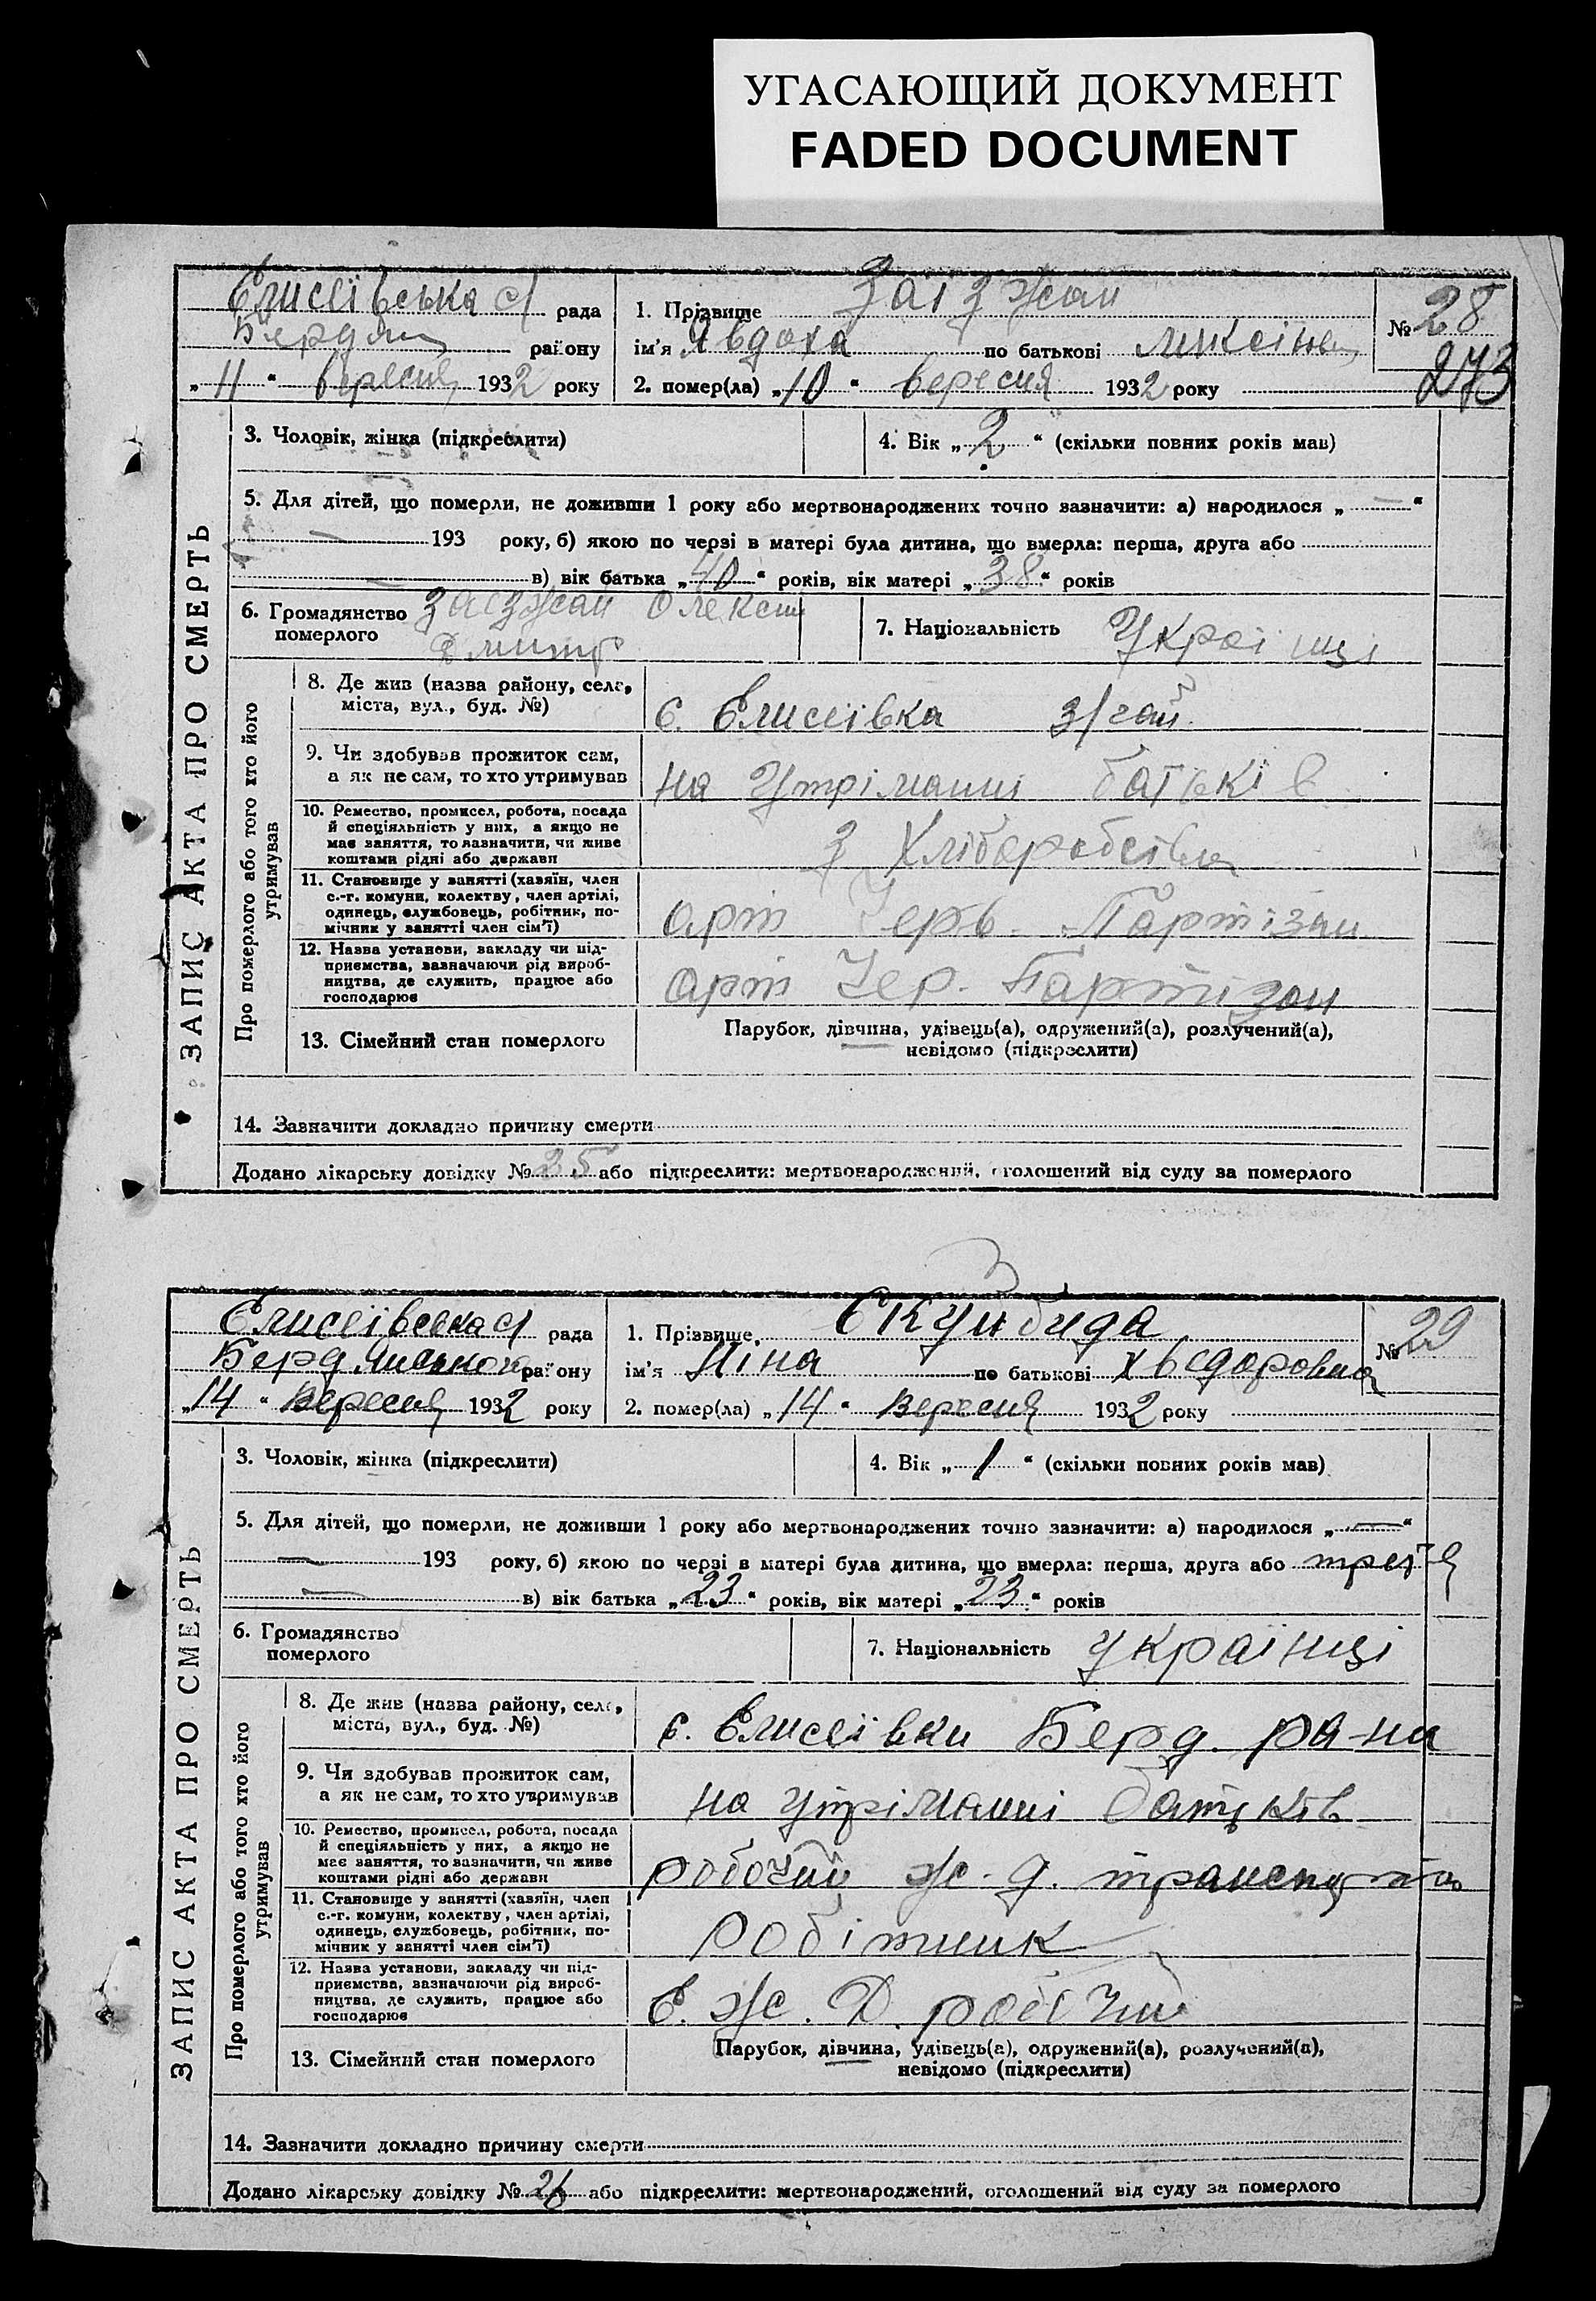 УГАСАЮЩИЙ ДОКУМЕНТ
FADED DOCUMENT
ЗАПИС АКТА ПРО СМЕРТЬ
Єлисеївська с/ рада
Бердян району
„ 11 “ вересня 1932 року
1. Прізвище Заїзжан
ім'я Явдоха по батькові
2. помер(ла) „ 10 “ вересня 1932 року
№ 28
273
3. Чоловік, жінка (підкреслити)
4. Вік „ 2 “ (скільки повних років мав)
5. Для дітей, що померли, не доживши 1 року або мертвонароджених точно зазначити: а) народилося „ — “
— 193 року, б) якою по черзі в матері була дитина, що вмерла: перша, друга або
— в) вік батька „ 40 “ років, вік матері „ 38 “ років
6. Громадянство
померлого
Заєзжан Олекси
7. Національність Українці
Про померлого або того хто його
утримував
8. Де жив (назва району, села,
міста, вул., буд. №)
с. Єлисеївка
9. Чи здобував прожиток сам,
а як не сам, то хто утримував
на утріманні батьків
10. Ремество, промисел, робота, посада
й спеціяльність у них, а якщо не
має заняття, то зазначити, чи живе
коштами рідні або держави
з Хліборобства
11. Становище у занятті (хазяїн, член
с.-г. комуни, колективу, член артілі,
одинець, службовець, робітник, по-
мічник у занятті член сім'ї)
арт Черв. Партізан
12. Назва установи, закладу чи під-
приємства, зазначаючи рід вироб-
ництва, де служить, працює або
господарює
арт Чер. Партізан
13. Сімейний стан померлого
Парубок, дівчина, удівець(а), одружений(а), розлучений(а),
невідомо (підкреслити)
14. Зазначити докладно причину смерти
Додано лікарську довідку № 25 або підкреслити: мертвонароджений, оголошений від суду за померлого
ЗАПИС АКТА ПРО СМЕРТЬ
Єлисеївська с/ рада
Бердянського району
„ 14 “ Вересня 1932 року
1. Прізвище Скунбида
ім'я Ніна по батькові Хведоровна
2. помер(ла) „ 14 “ Вересня 1932 року
№ 29
3. Чоловік, жінка (підкреслити)
4. Вік „ 1 “ (скільки повних років мав)
5. Для дітей, що померли, не доживши 1 року або мертвонароджених точно зазначити: а) народилося „ — “
— 193 року, б) якою по черзі в матері була дитина, що вмерла: перша, друга або третя
— в) вік батька „ 23 “ років, вік матері „ 23 “ років
6. Громадянство
померлого
7. Національність українці
Про померлого або того хто його
утримував
8. Де жив (назва району, села,
міста, вул., буд. №)
с. Єлисеївки Берд. ра-на
9. Чи здобував прожиток сам,
а як не сам, то хто утримував
на утріманні батьків
10. Ремество, промисел, робота, посада
й спеціяльність у них, а якщо не
має заняття, то зазначити, чи живе
коштами рідні або держави
робочий ж. д. транспорта
11. Становище у занятті (хазяїн, член
с.-г. комуни, колективу, член артілі,
одинець, службовець, робітник, по-
мічник у занятті член сім'ї)
робітник
12. Назва установи, закладу чи під-
приємства, зазначаючи рід вироб-
ництва, де служить, працює або
господарює
Є. Ж. Д. робочий
13. Сімейний стан померлого
Парубок, дівчина, удівець(а), одружений(а), розлучений(а),
невідомо (підкреслити)
14. Зазначити докладно причину смерти
Додано лікарську довідку № 26 або підкреслити: мертвонароджений, оголошений від суду за померлого